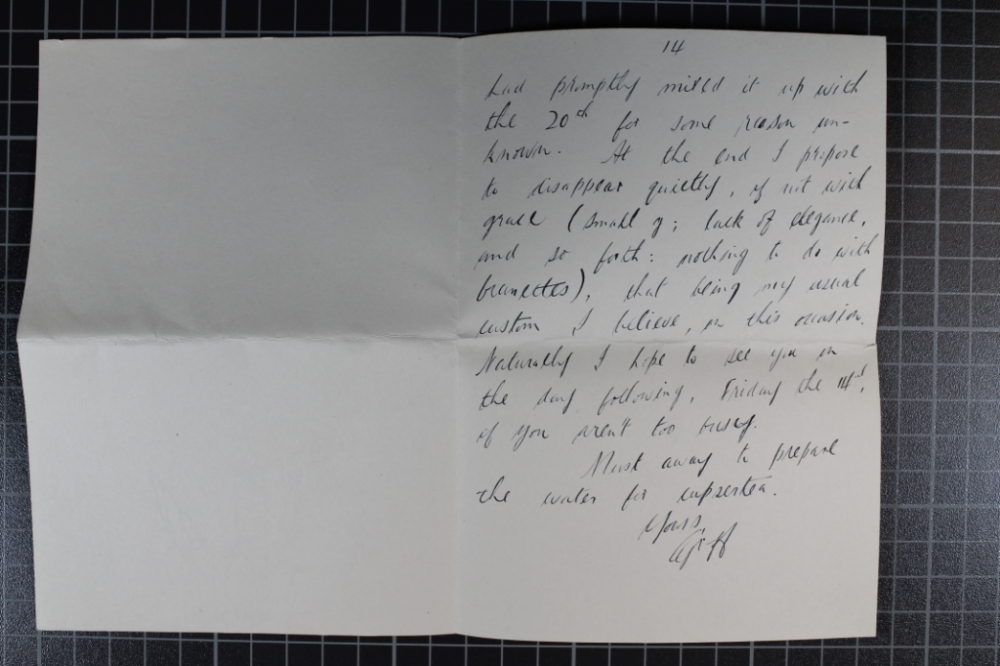 14
had promptly mixed it up with
the 20th for some reason un-
known. At the end I propose
to disappear quietly, if not with
grace (small g; lack of elegance,
and so forth: nothing to do with
brunettes), that being my usual
custom I believe, on this occasion.
Naturally I hope to see you on
the day following, Friday the
if you aren't too busy.
Must away to prepare
the water for cupsertea.
Yours,